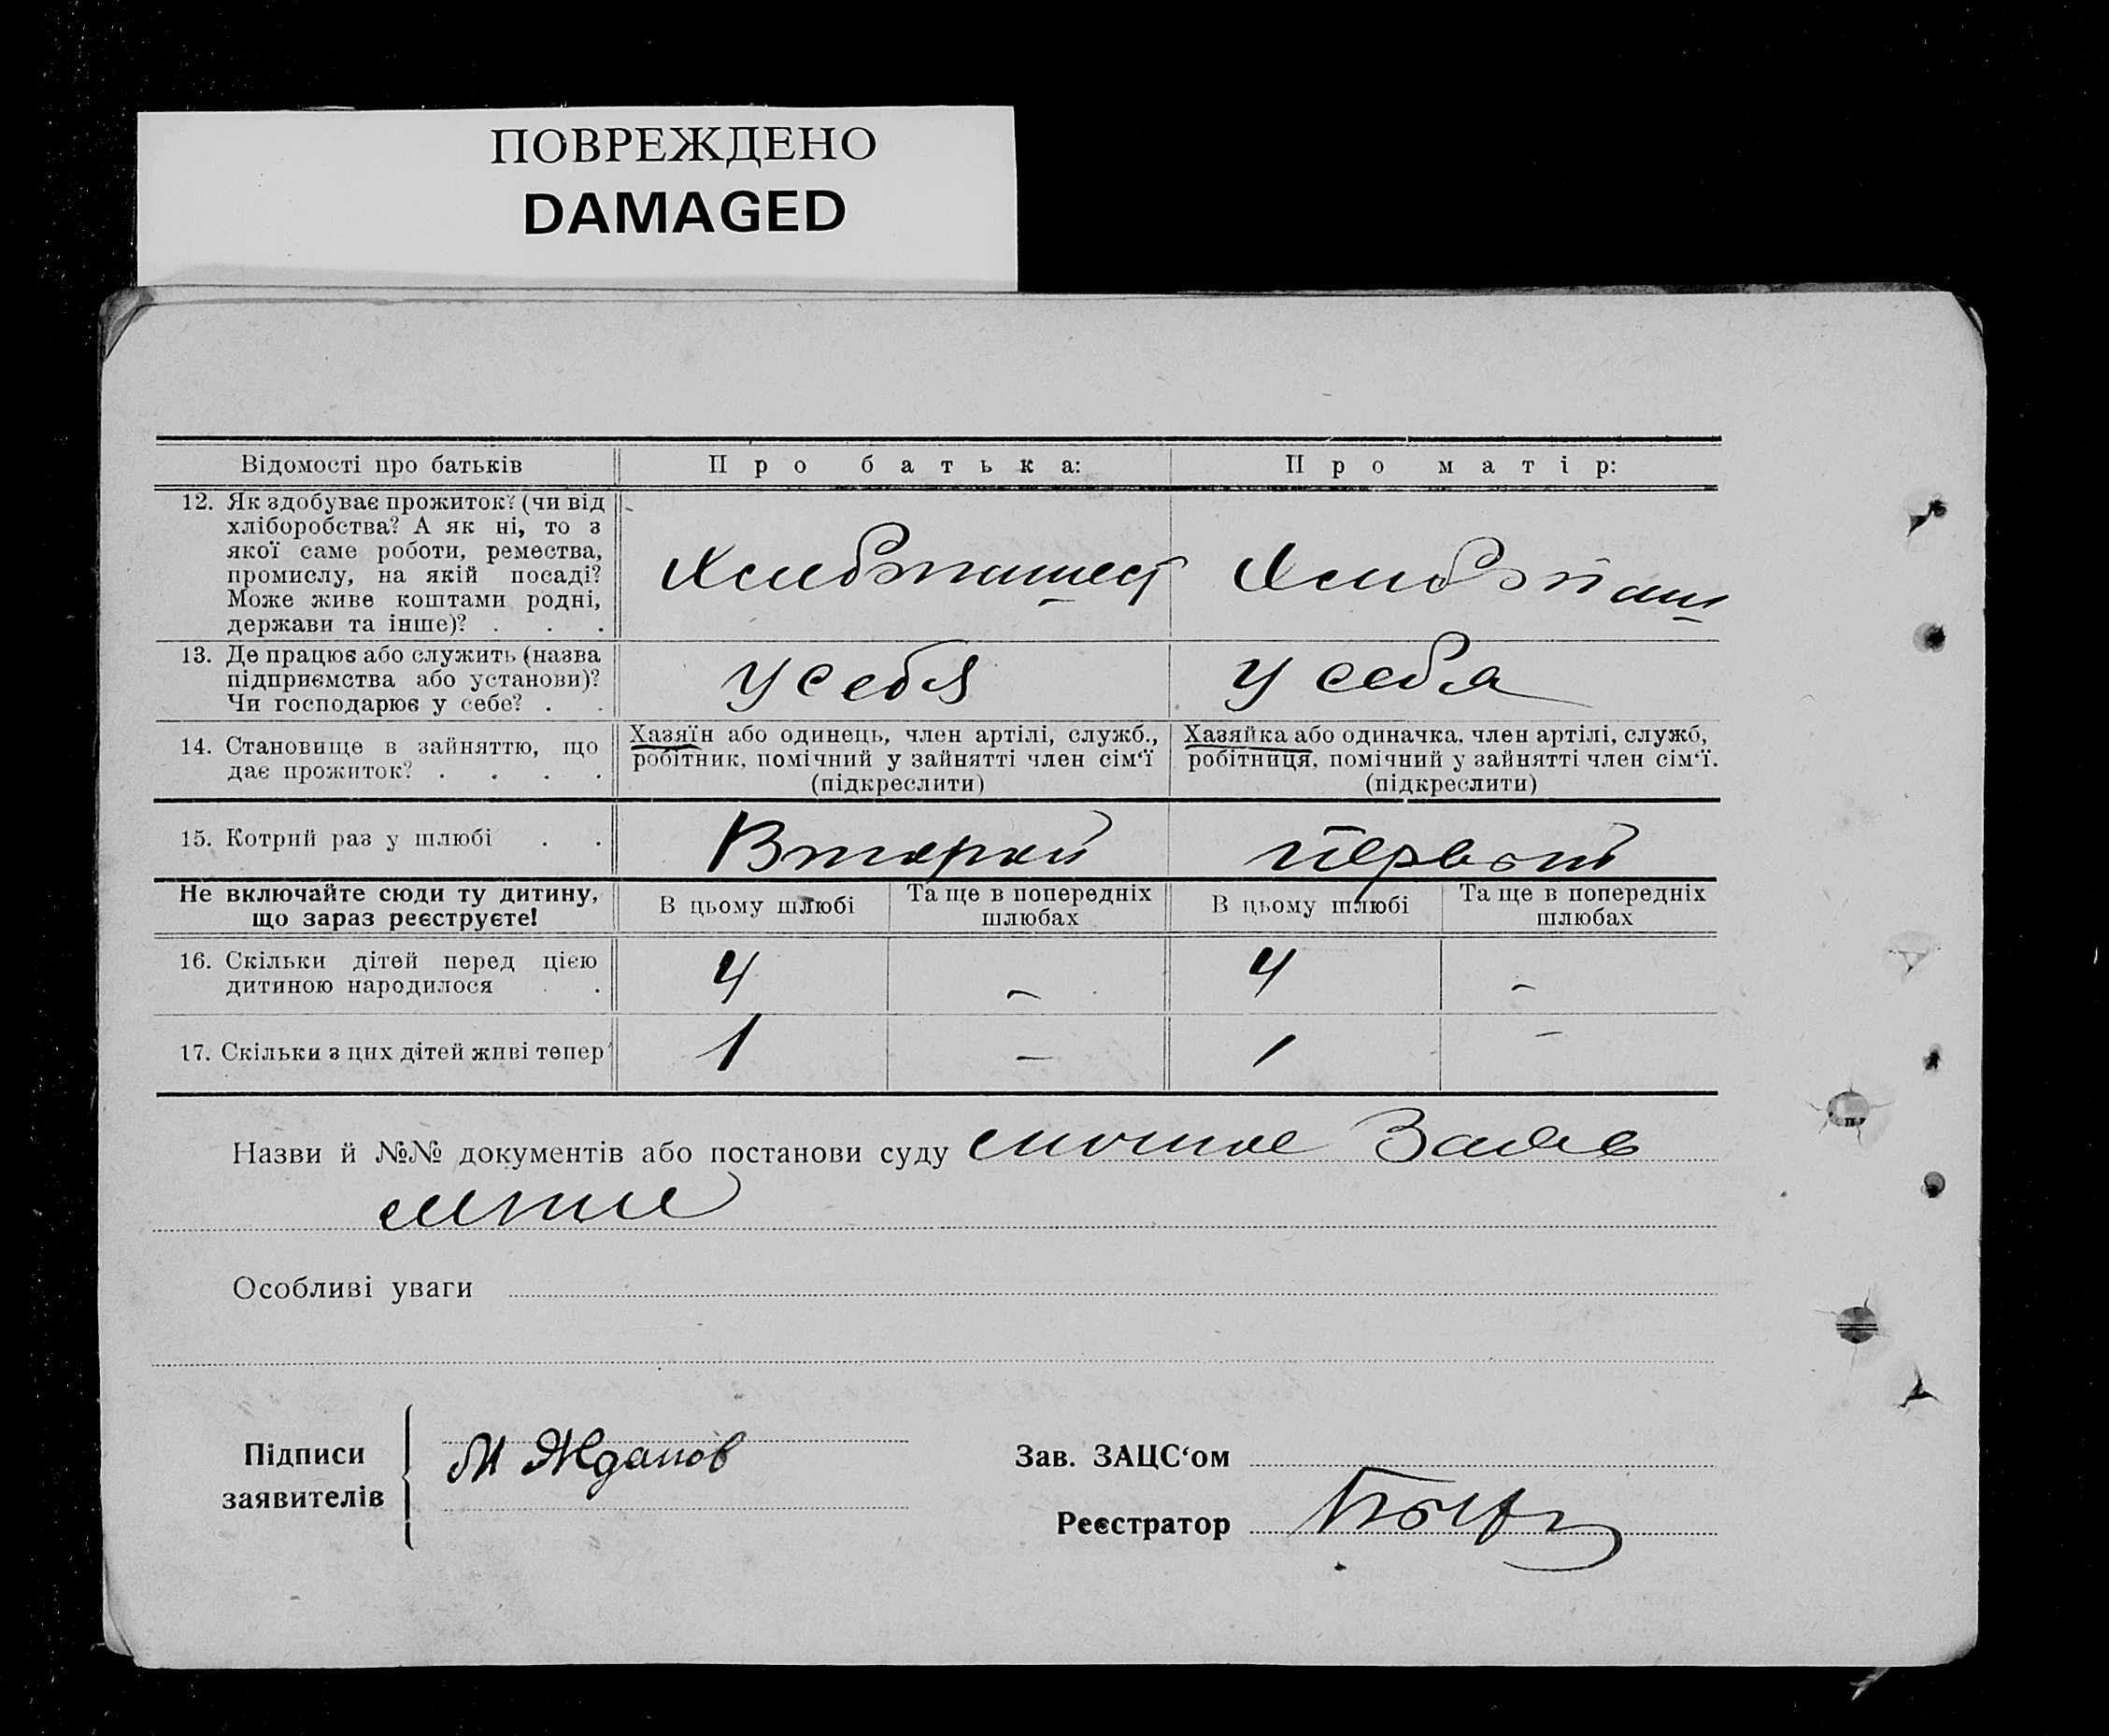 ПОВРЕЖДЕНО
DAMAGED
Відомості про батьків
Про батька:
Про матір:
12. Як здобуває прожиток? (чи від
хліборобства? А як ні, то з
якої саме роботи, ремества,
промислу, на якій посаді?
Може живе коштами родні,
держави та інше)? . . .
Хлебопашест
Хлебопаш
13. Де працює або служить (назва
підприємства або установи)?
Чи господарює у себе? . .
У себя
У себя
14. Становище в зайняттю, що
дає прожиток? . . . .
Хазяїн або одинець, член артілі, служб.,
робітник, помічний у зайнятті член сім‘ї
(підкреслити)
Хазяйка або одиначка, член артілі, служб,
робітниця, помічний у зайнятті член сім‘ї.
(підкреслити)
15. Котрий раз у шлюбі . .
Второй
Первый
Не включайте сюди ту дитину,
що зараз реєструєте!
В цьому шлюбі
Та ще в попередніх
шлюбах
В цьому шлюбі
Та ще в попередніх
шлюбах
16. Скільки дітей перед цією
дитиною народилося . .
4
–
4
–
17. Скільки з цих дітей живі тепер
1
–
1
–
Назви й №№ документів або постанови суду
Особливі уваги
Підписи
заявителів
М Жданов
Зав. ЗАЦС‘ом
Реєстратор